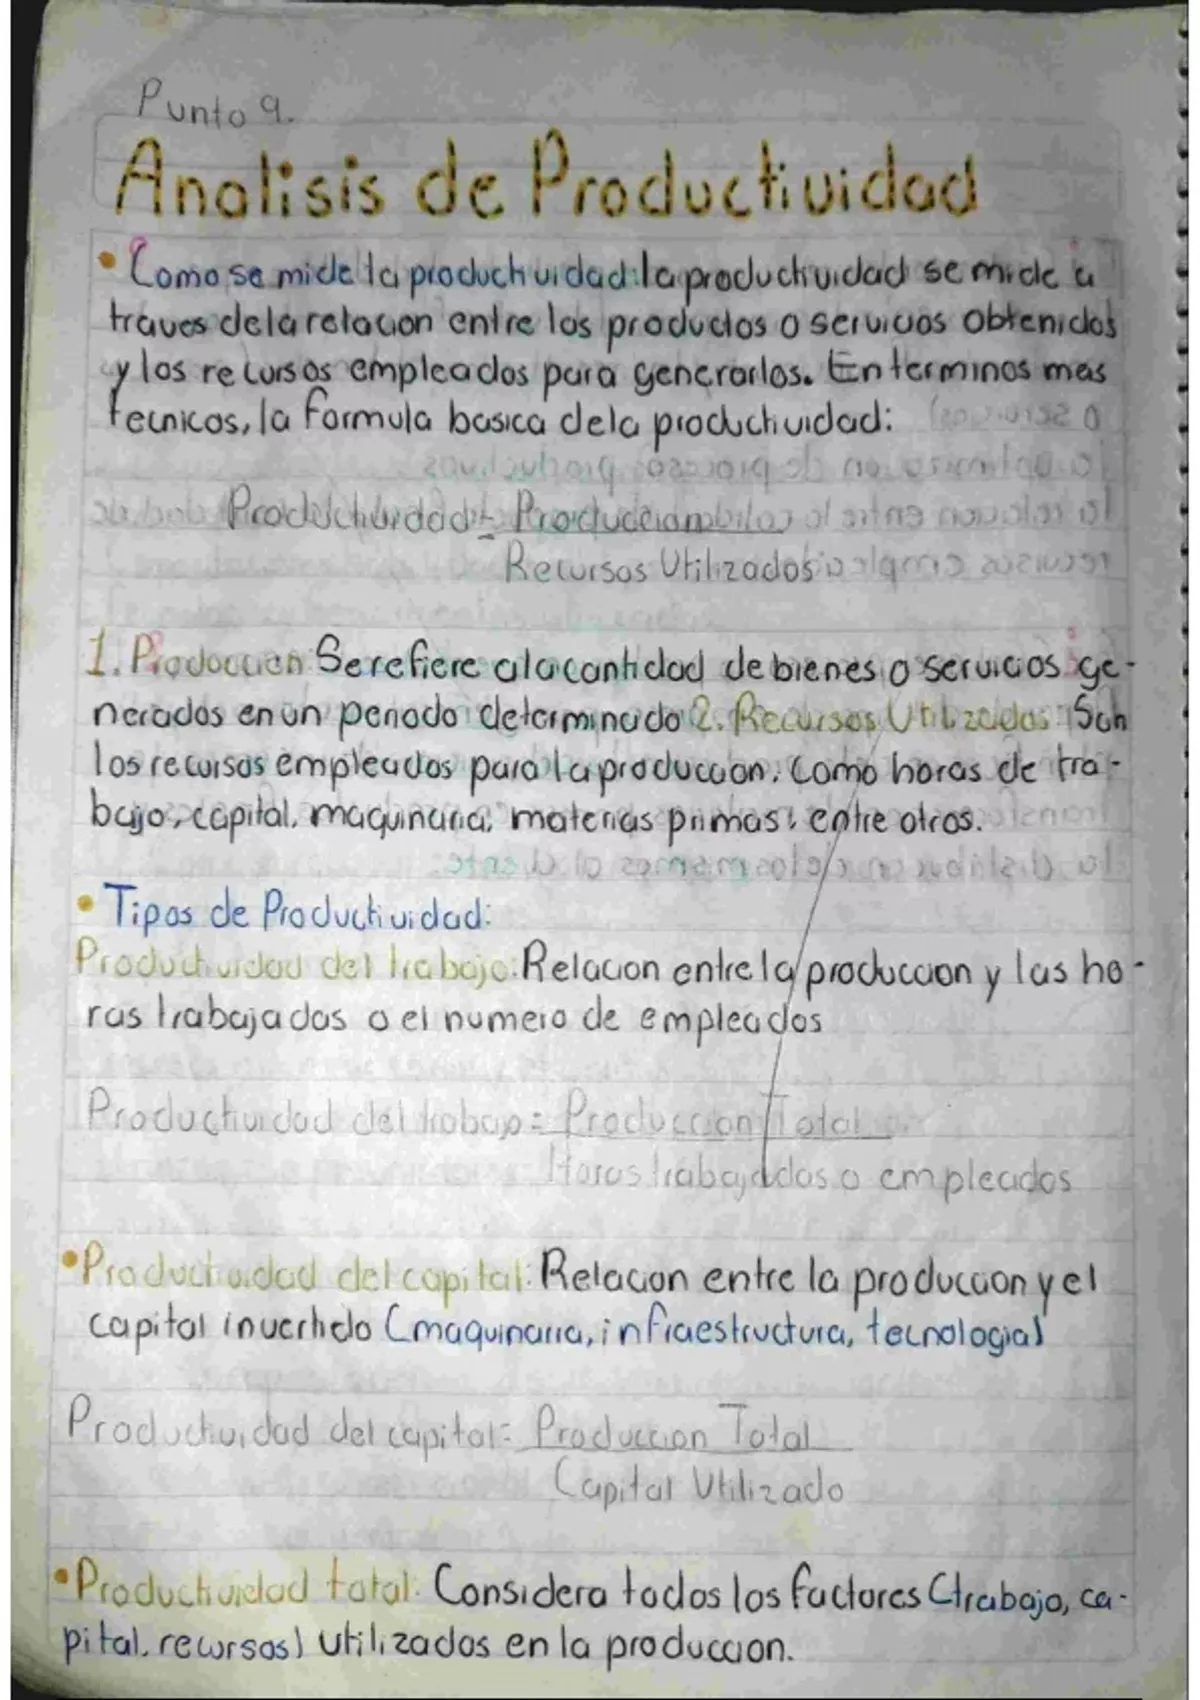 Punto 9.
Analisis de Productividad
• Como se mide la productividad: la productividad se mide a
traves de la relacion entre los productos o servicios obtenidos
y los recursos empleados para generarlos. En terminos mas
tecnicos, la formula basica de la productividad:
Productividad = Produccion
Recursos Utilizados
1. Produccion Se refiere a la cantidad de bienes o servicios ge-
nerados en un periodo determinado 2. Recursos Utilizados: Son
los recursos empleados para la produccion. Como horas de tra-
bajo, capital, maquinaria, materias primas, entre otros.
• Tipos de Productividad:
Productividad del trabajo: Relacion entre la produccion y las ho-
ras trabajadas o el numero de empleados
Productividad del trabajo = Produccion Total
Horas trabajadas o empleados
• Productividad del capital: Relacion entre la produccion y el
capital invertido (maquinaria, infraestructura, tecnologia)
Productividad del capital = Produccion Total
Capital Utilizado
• Productividad total: Considera todos los factores (trabajo, ca-
pital, recursos) utilizados en la produccion.